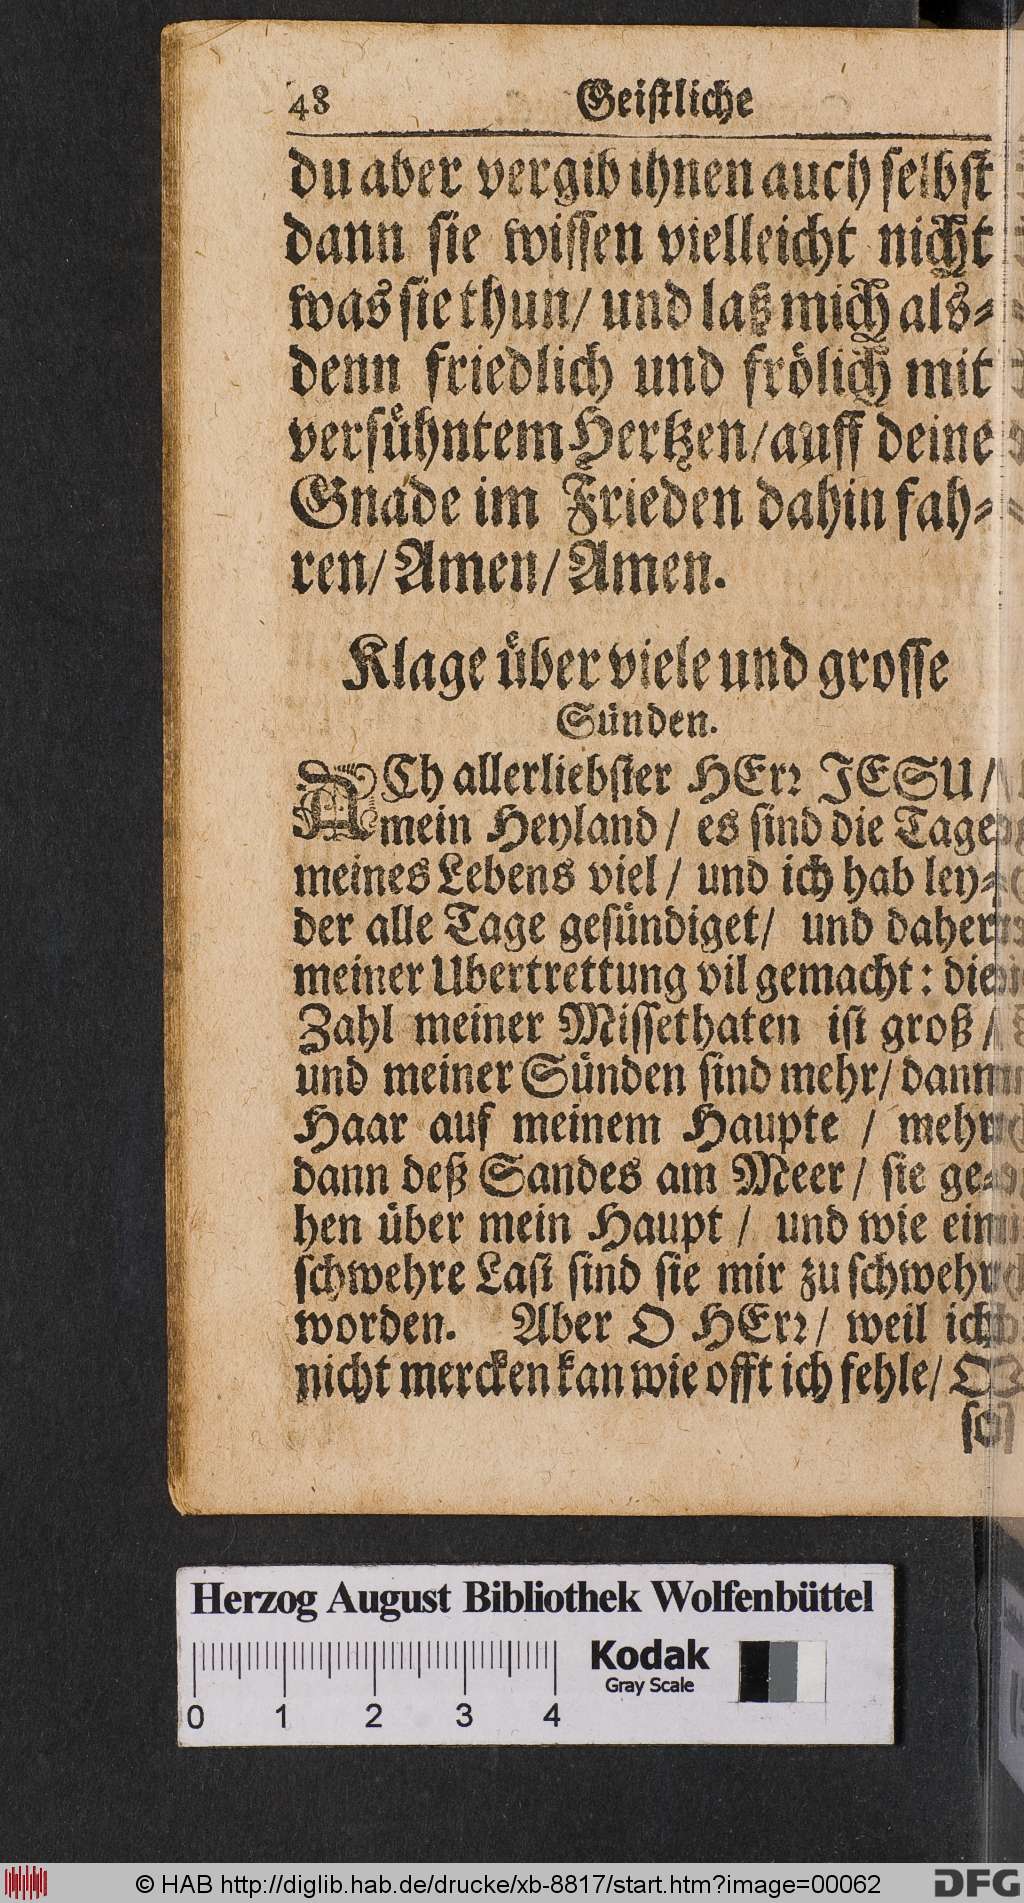 48 Geistliche
du aber vergib ihnen auch selbst
dann sie wissen vielleicht nicht
was sie thun/ und laß mich als-
denn friedlich und frölich mit
versühntem Hertzen/ auff deine
Gnade im Frieden dahin fah-
ren/ Amen/ Amen.
Klage über viele und grosse
Sünden.
ACh allerliebster HErr JESU/
mein Heyland/ es sind die Tage
meines Lebens viel/ und ich hab ley-
der alle Tage gesündiget/ und daher
meiner Ubertrettung vil gemacht: die
Zahl meiner Missethaten ist groß/
und meiner Sünden sind mehr/ dann
Haar auf meinem Haupte / mehr
dann deß Sandes am Meer/ sie ge-
hen über mein Haupt / und wie ein
schwehre Last sind sie mir zu schwehr
worden. Aber O HErr/ weil ich
nicht mercken kan wie offt ich fehle/ O
so
Herzog August Bibliothek Wolfenbüttel
Kodak
Gray Scale
0 1 2 3 4
© HAB http://diglib.hab.de/drucke/xb-8817/start.htm?image=00062
DFG